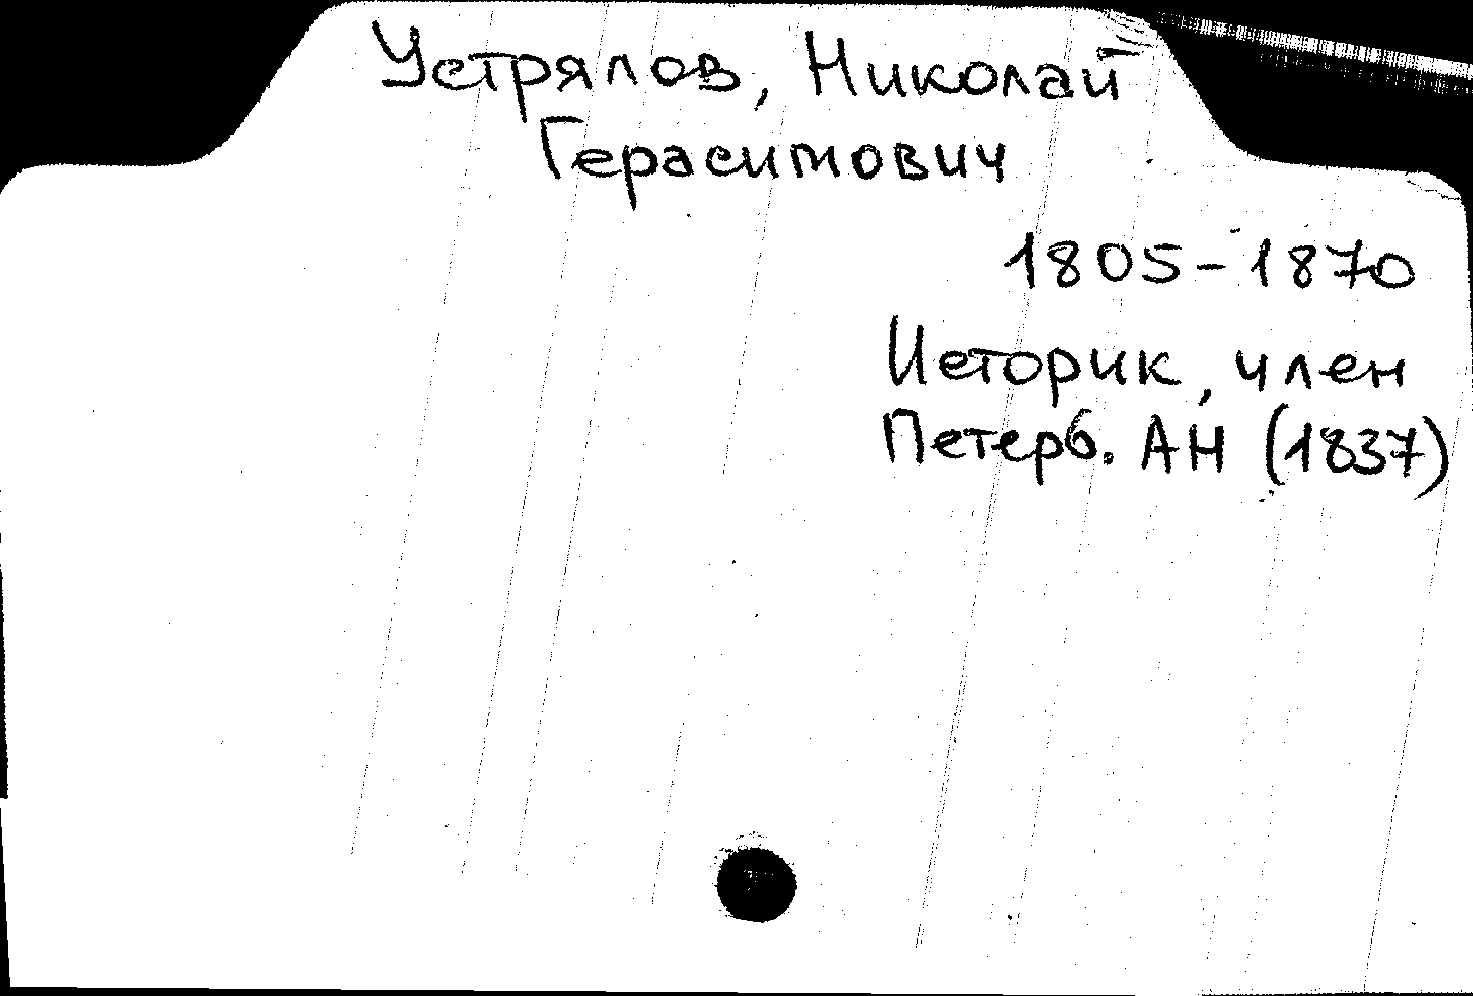 Устрялов, Николай
Герасимович
1805-1870
Историк, член
Петерб. АН (1837)